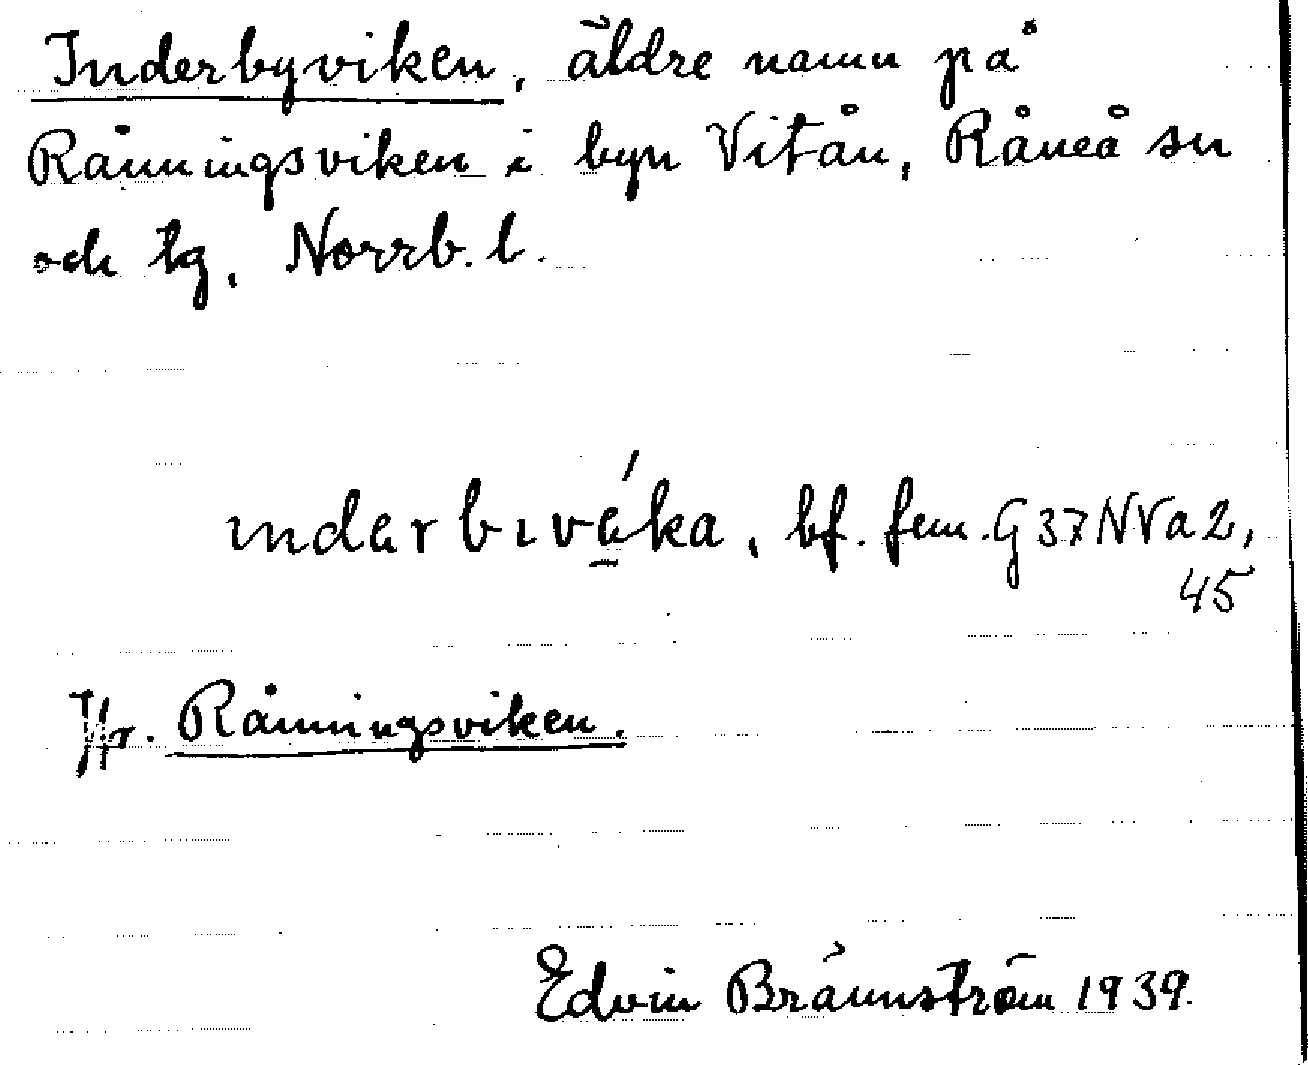 Inderbyviken, äldre namn på
Rånningsviken i byn Vitån, Råneå sn
och tg, Norrb. l.
ındarbıvéka, bf. fem. G37NVa2,
45
Jfr. Rånningsviken.
Edvin Brännström 1939.